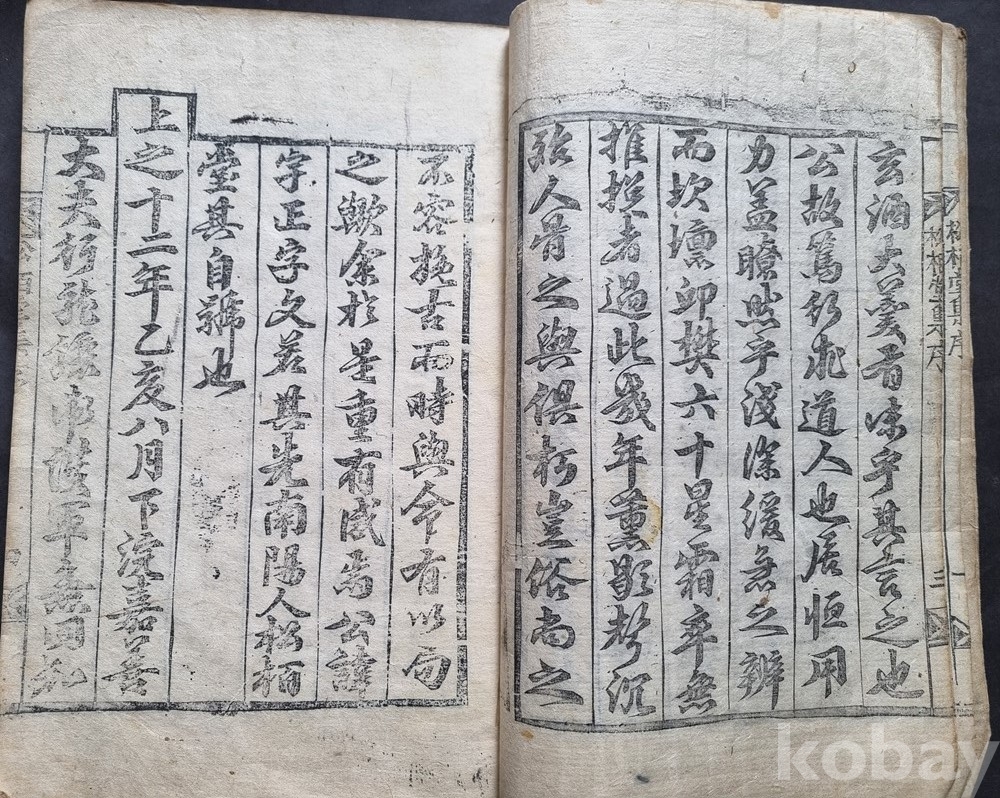 松栢堂集序 一
松栢堂集序 三
玄酒大羹者味乎其言之也
公故篤行非道人也居恒用
力盖瞭然乎淺深緩急之辨
而坎壈卯樊六十星霜卒無
推招者過此幾年薰歇聲沉
殆人骨之與俱朽豈俗尚之
不容挽古而時與今有以局
之歟余於是重有感焉公諱
字正字文若其先南陽人松栢
堂其自號也
上之十二年乙亥八月下浣嘉善
大夫行龍驤衛護軍兼同知
kobay